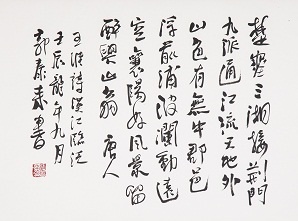 楚塞三湘接荊門
九派通江流天地外
山色有無中郡邑
浮前浦波瀾動遠
空襄陽好風景留
醉與山翁 唐人
王維詩漢江臨泛
壬辰龍年九月
郭泰来書